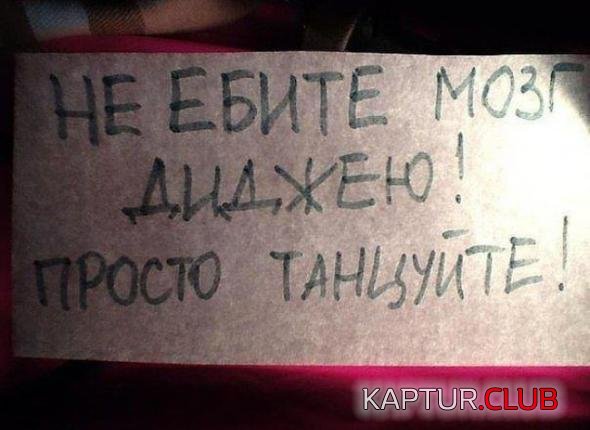 НЕ ЕБИТЕ МОЗГ
ДИДЖЕЮ!
ПРОСТО ТАНЦУЙТЕ!
KAPTUR.CLUB